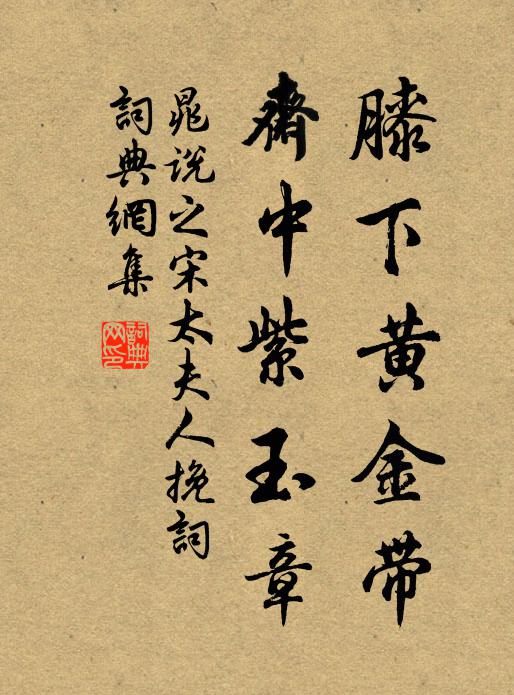 膝下黄金带
齋中紫玉章
晁説之宋太夫人挽詞
詞典網集
詞典网印